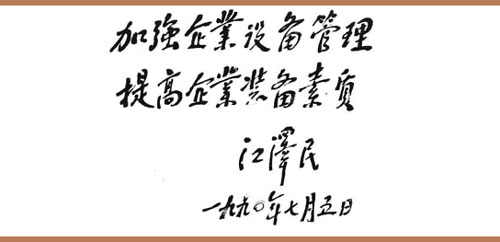 加強企業设备管理
提高企業装备素质
江澤民
一九九〇年七月五日